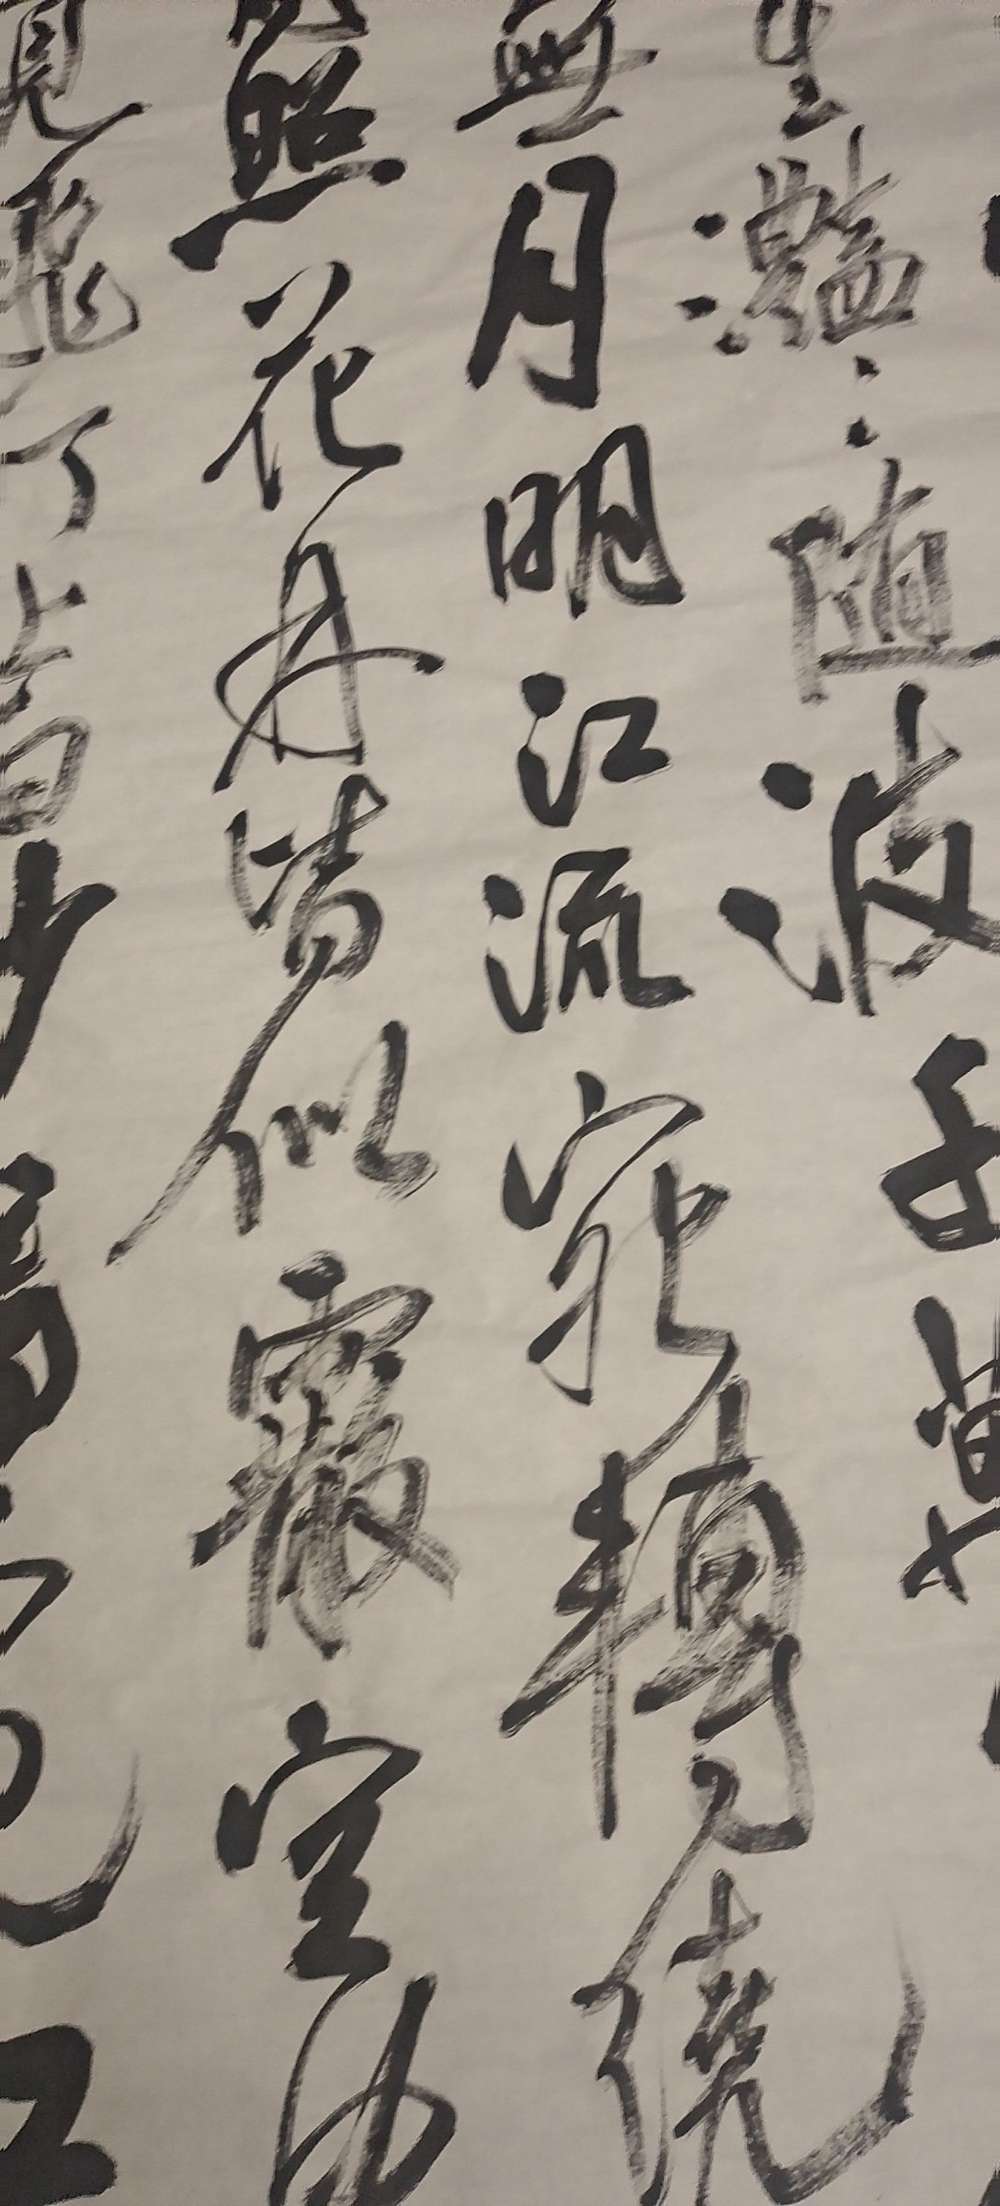 生灩〻随波千萬
無月明江流宛轉繞
照花皆似霰空
飛汀上白沙看不見江